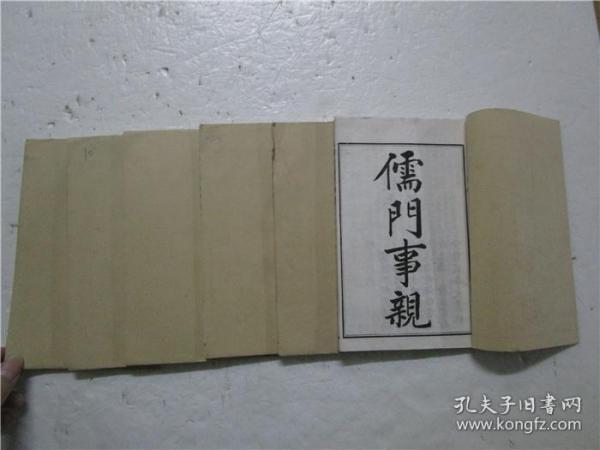 儒門事親
10
孔夫子旧書网
www.kongfz.com